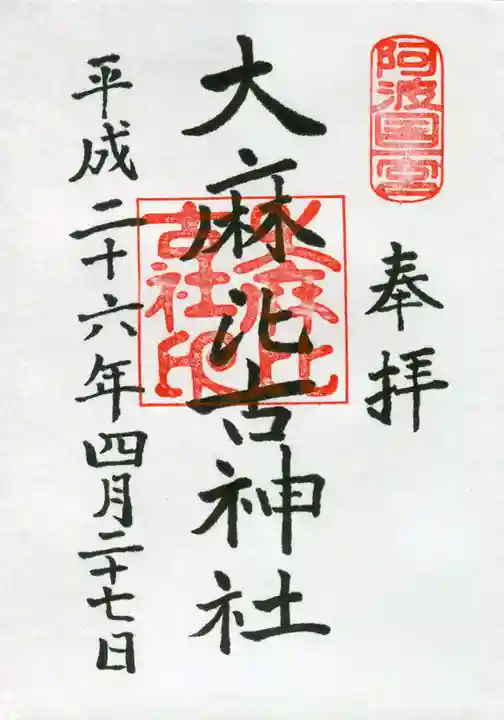 阿波国一宮
奉拝
大麻比古神社
大麻比古社印
平成二十六年四月二十七日